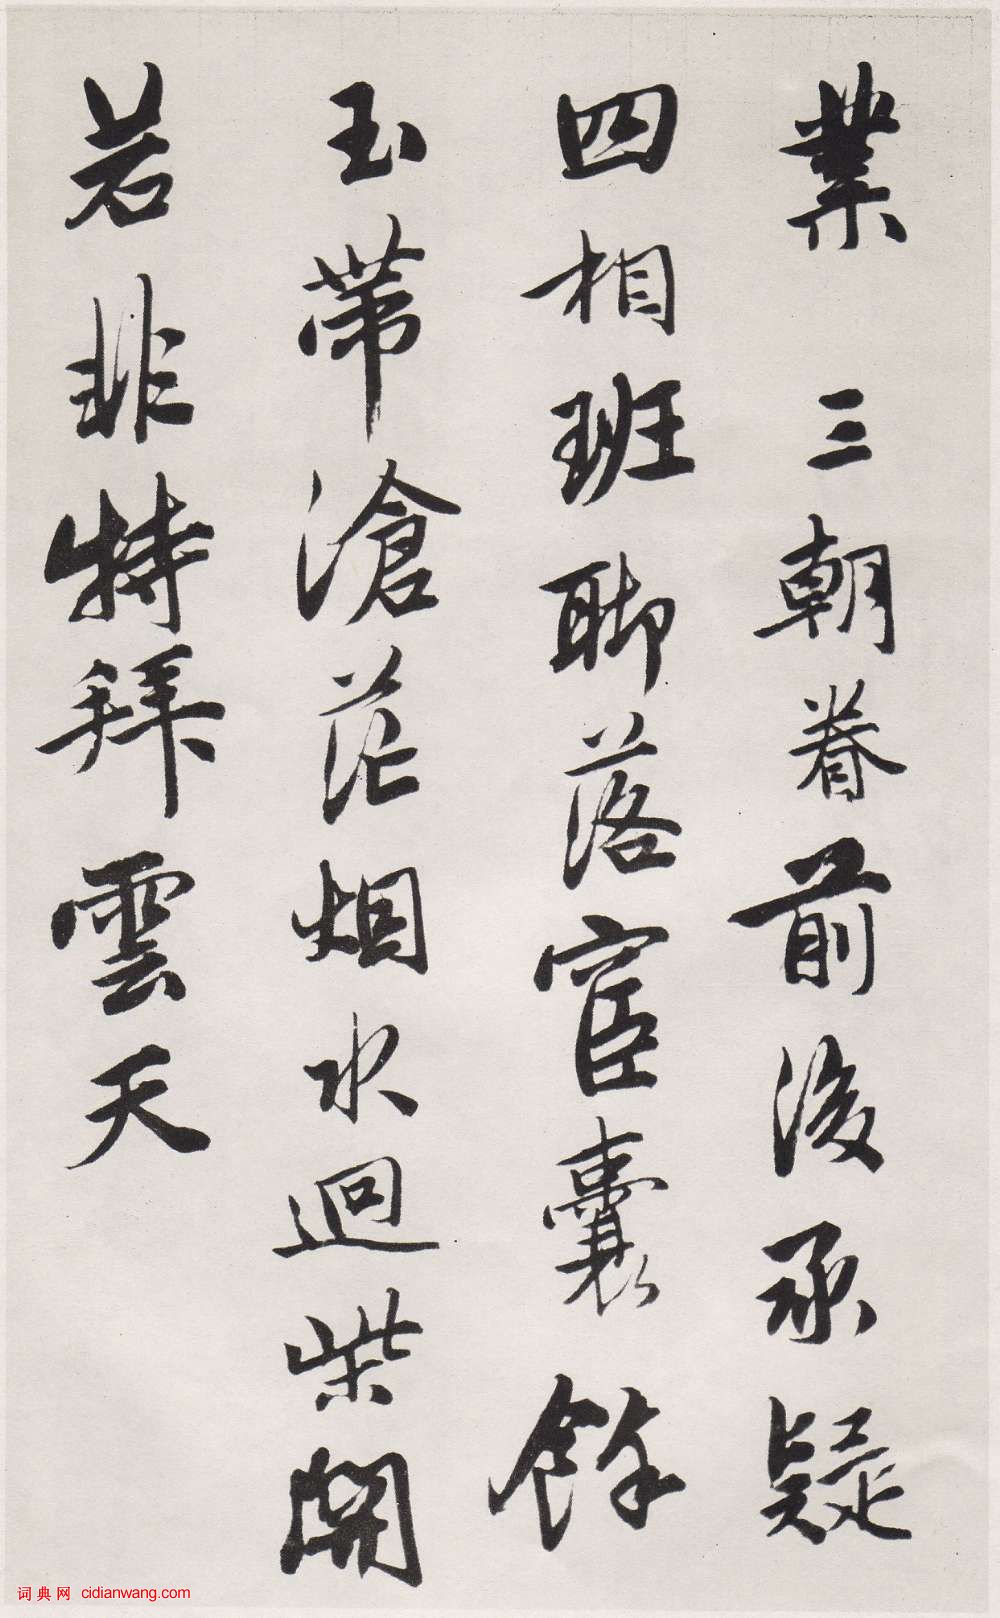 業三朝眷前後承疑
四相班聊落宦囊餘
玉帶滄茫烟水迴柴關
若非特拜雲天
词典网 cidianwang.com